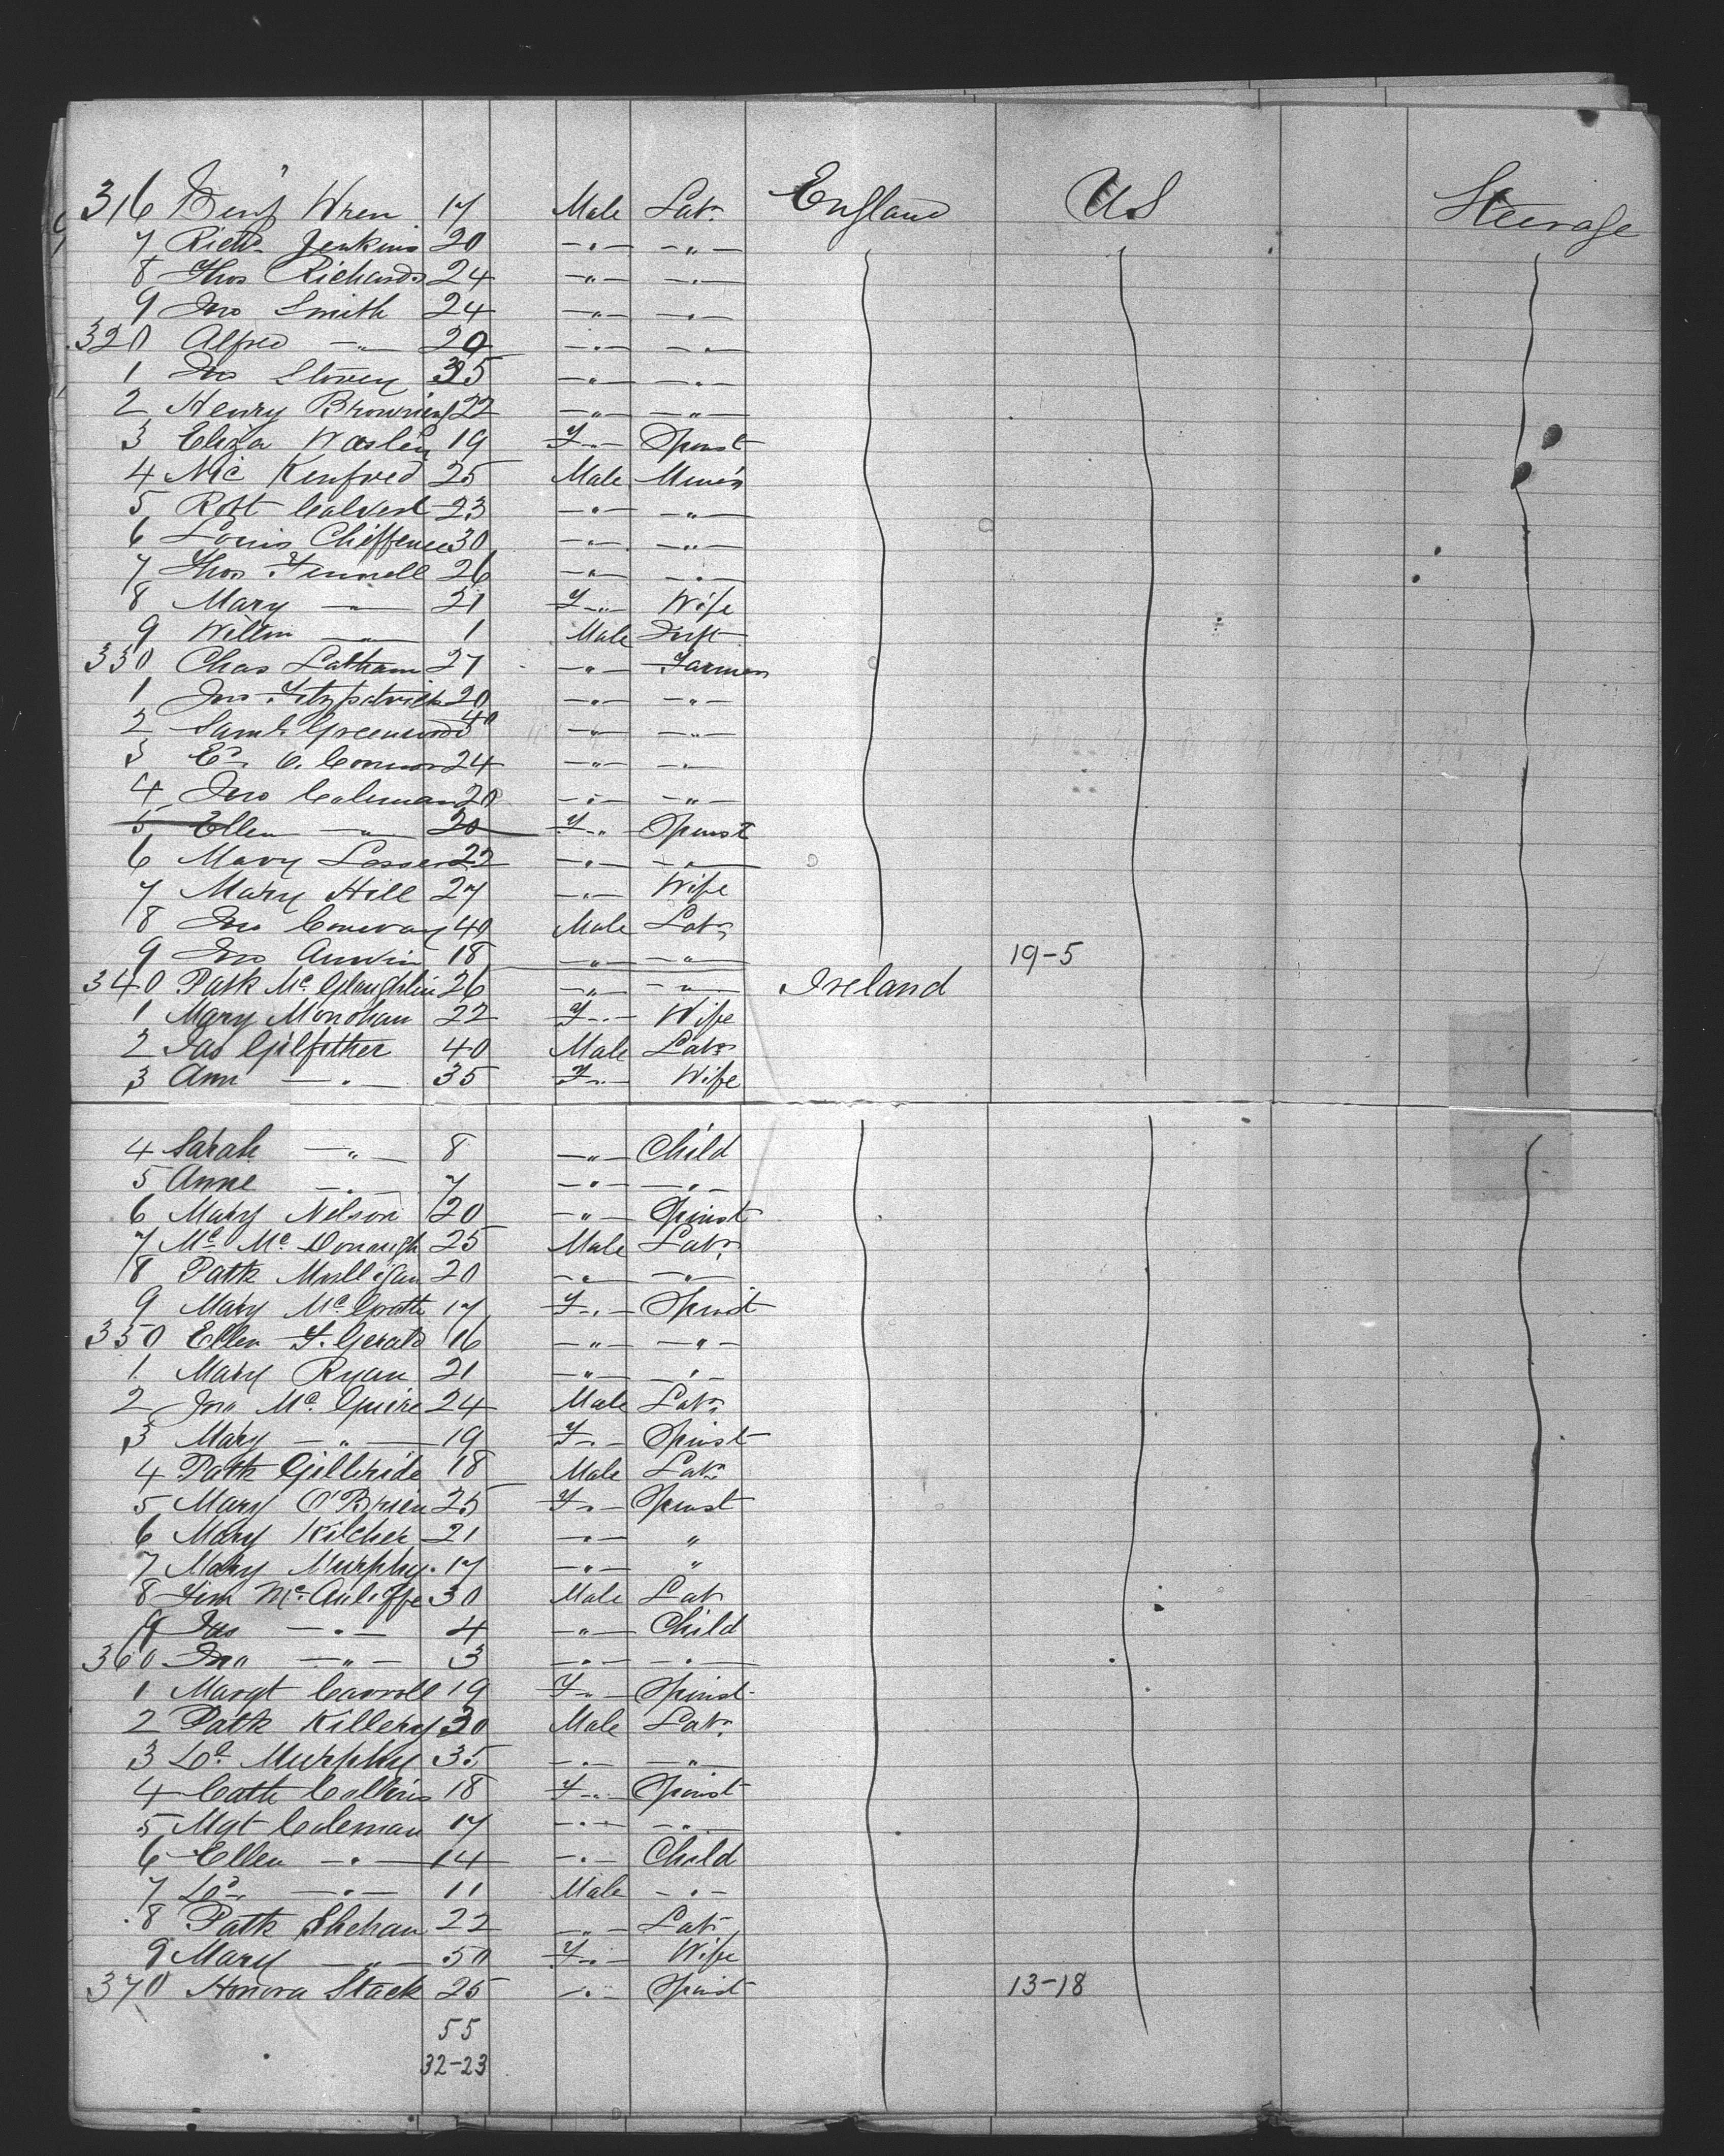 316 Benj Wren 17 Male Labr England US Steerage
7 Richd Jenkins 20 —"— —"—
8 Thos Richards 24 —"— —"—
9 Jno Smith 24 —"— —"—
320 Alfred —"— 20 —"— —"—
1 Jno Storey 35 —"— —"—
2 Henry Browning 22 —"— —"—
3 Eliza 19 F—"— Spinst
4 Nic Kenfred 25 Male Miner
5 Robt Calvert 23 —"— —"—
6 Louis 30 —"— —"—
7 Thos Fennell 26 —"— —"—
8 Mary —"— 21 F—"— Wife
9 Willm —"— 1 Male Inft
330 Chas Latham 27 —"— Farmer
1 Jno Fitzpatrick 20 —"— —"—
2 Saml Greenwood 40 —"— —"—
3 Ed O.Connor 24 —"— —"—
4 Jno Coleman 20 —"— —"—
5 Ellen —"— 20 F—"— Spinst
6 Mary 22 —"— —"—
7 Mary Hill 27 —"— Wife
8 Jno Conway 40 Male Labr
9 Jno 18 —"— —"— 19-5
340 Patk McGlaughlin 26 —"— —"— Ireland
1 Mary Monohan 22 F—"— Wife
2 Jas Gilfether 40 Male Labr
3 Ann —"— 35 F—"— Wife
4 Sarah —"— 8 —"— Child
5 Anne —"— 7 —"— —"—
6 Mary Nelson 20 —"— Spinst
7 Mc McDonaugh 25 Male Labr
8 Patk Mulligan 20 —"— —"—
9 Mary McGrath 17 F—"— Spinst
350 Ellen F.Gerald 16 —"— —"—
1 Mary Ryan 21 —"— —"—
2 Jno McGuire 24 Male Labr
3 Mary —"— 19 F—"— Spinst
4 Patk Gillbride 18 Male Labr
5 Mary O'Brien 25 F—"— Spinst
6 Mary Kilcher 21 —"— "
7 Mary Murphy 17 —"— "
8 Tim McAuliffe 30 Male Labr
9 Jas —"— 4 —"— Child
360 Jno —"— 3 —"— —"—
1 Margt Carroll 19 F—"— Spinst
2 Patk Killery 30 Male Labr
3 Do Murphy 35 —"— —"—
4 Cath Collins 18 F—"— Spinst
5 Mgt Coleman 17 —"— —"—
6 Ellen —"— 14 —"— Child
7 Do —"— 11 Male —"—
8 Patk Shehan 22 —"— Labr
9 Mary —"— 50 F—"— Wife
370 Honora Stack 25 —"— Spinst 13-18
55
32-23